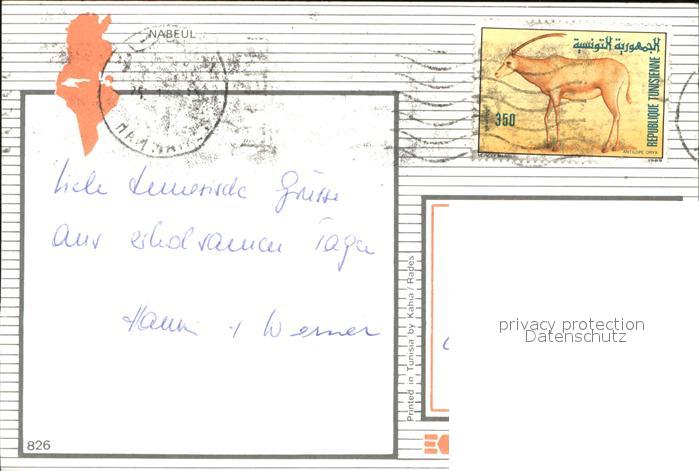 NABEUL
الجمهورية التونسية
REPUBLIQUE TUNISIENNE
350
ANTILOPE ORYX
liebe tunesische Grüsse
aus erholsamen Tagen
Hanni + Werner
Printed in Tunisia by Kahia / Rades
privacy protection
Datenschutz
826